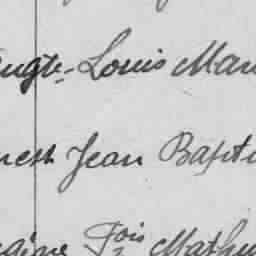 Augte- Louis Mari
nest Jean Baptis
gène Fois Mathu